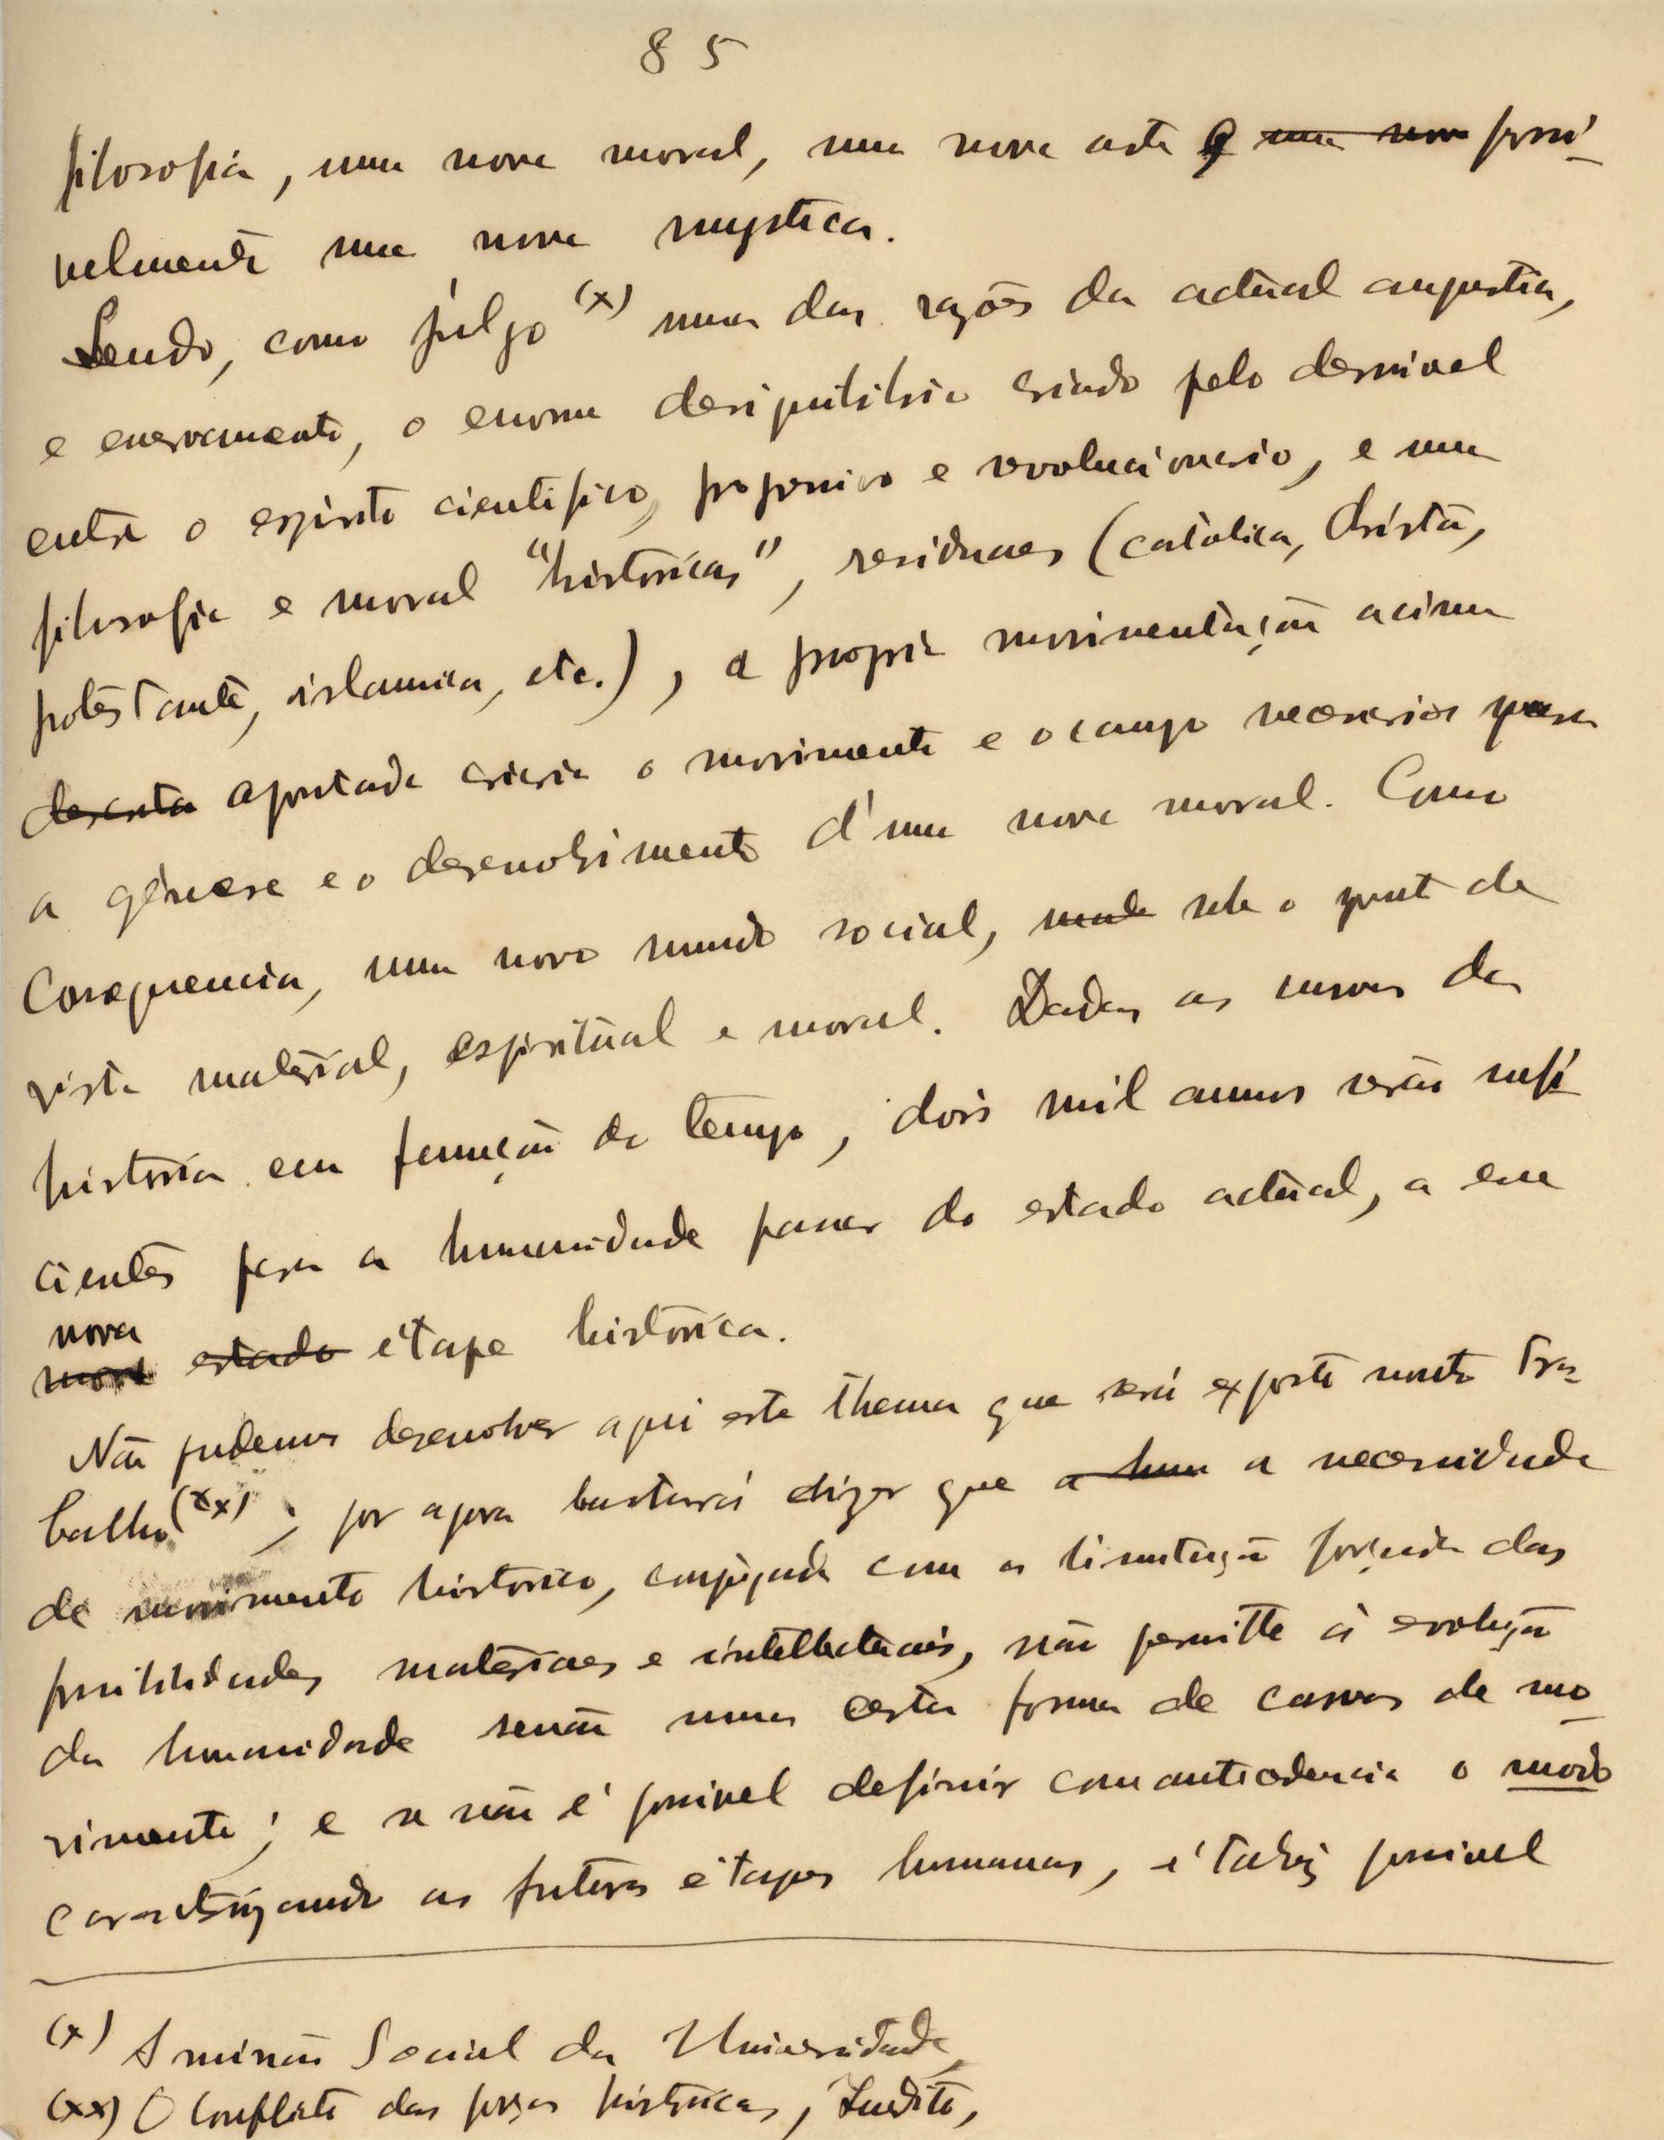 85
filosofia, uma nova moral, uma nova arte e ~~uma nova~~ possi-
velmente uma nova mystica.
Sendo, como julgo (x) uma das razões da actual angustia,
e enervamento, o enorme desiquilibrio criado pelo desnivel
entre o espirito cientifico, progressivo e revolucionario, e uma
filosofia e moral "historicas", residuaes (catolica, christã,
protestante, islamica, etc.), a propria movimentação acima
~~descrita~~ apontada criaria o movimento e o campo necessarios para
a génese e o desenvolvimento d'uma nova moral. Como
Consequencia, um novo mundo social, sob o ponto de
vista material, espiritual e moral. Dadas as curvas da
historia em funcção do tempo, dois mil annos serão sufi-
cientes para a humanidade passar do estado actual, a essa
nova
~~estado~~ étape historica.
Não podemos desenvolver aqui este thema que será exposto noutro tra-
balho (xx); por agora bastará dizer que a necessidade
de movimento historico, conjugada com a limitação forçada das
possibilidades materiaes e intellectuais, não permitte á evolução
da humanidade senão uma certa forma de curvas de mo-
vimento; e se não é possivel definir com antecedencia o modo
caracterizando as futuras étapes humanas, é talvez possivel
(x) A missão Social da Universidade
(xx) O Conflito das forças historicas, Inedito,